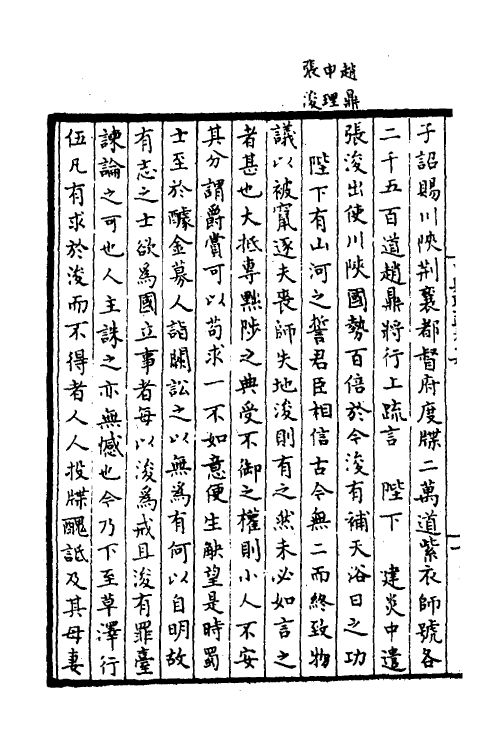 趙鼎
申理
張浚
子詔賜川陝荆襄都督府度牒二萬道紫衣師號各
二千五百道趙鼎將行上疏言　陛下　建炎中遣
張浚出使川陝國勢百倍於今浚有補天浴日之功
陛下有山河之誓君臣相信古今無二而終致物
議以被竄逐夫喪師失地浚則有之然未必如言之
者甚也大抵專黜陟之典受不御之權則小人不安
其分謂爵賞可以苟求一不如意便生觖望是時蜀
士至於醵金募人詣闕訟之以無為有何以自明故
有志之士欲為國立事者每以浚為戒且浚有罪臺
諫論之可也人主誅之亦無憾也今乃下至草澤行
伍凡有求於浚而不得者人人投牒醜詆及其母妻